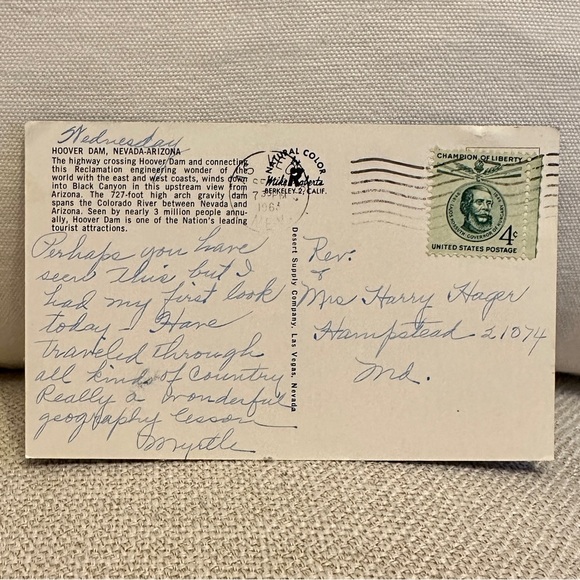 Wednesday
HOOVER DAM, NEVADA-ARIZONA
The highway crossing Hoover Dam and connecting
this Reclamation engineering wonder of the
world with the east and west coasts, winds down
into Black Canyon in this upstream view from
Arizona. The 727-foot high arch gravity dam
spans the Colorado River between Nevada and
Arizona. Seen by nearly 3 million people annu-
ally, Hoover Dam is one of the Nation's leading
tourist attractions.
Perhaps you have
seen this but I
had my first look
today - I Have
traveled through
all kinds of Country
Really a wonderful
geography lesson
Myrtle
NATURAL COLOR
Mike Roberts
BERKELEY 2, CALIF.
Desert Supply Company, Las Vegas, Nevada
CHAMPION OF LIBERTY
4¢
UNITED STATES POSTAGE
Rev.
&
Mrs Harry Hager
Hampstead 21074
Md.